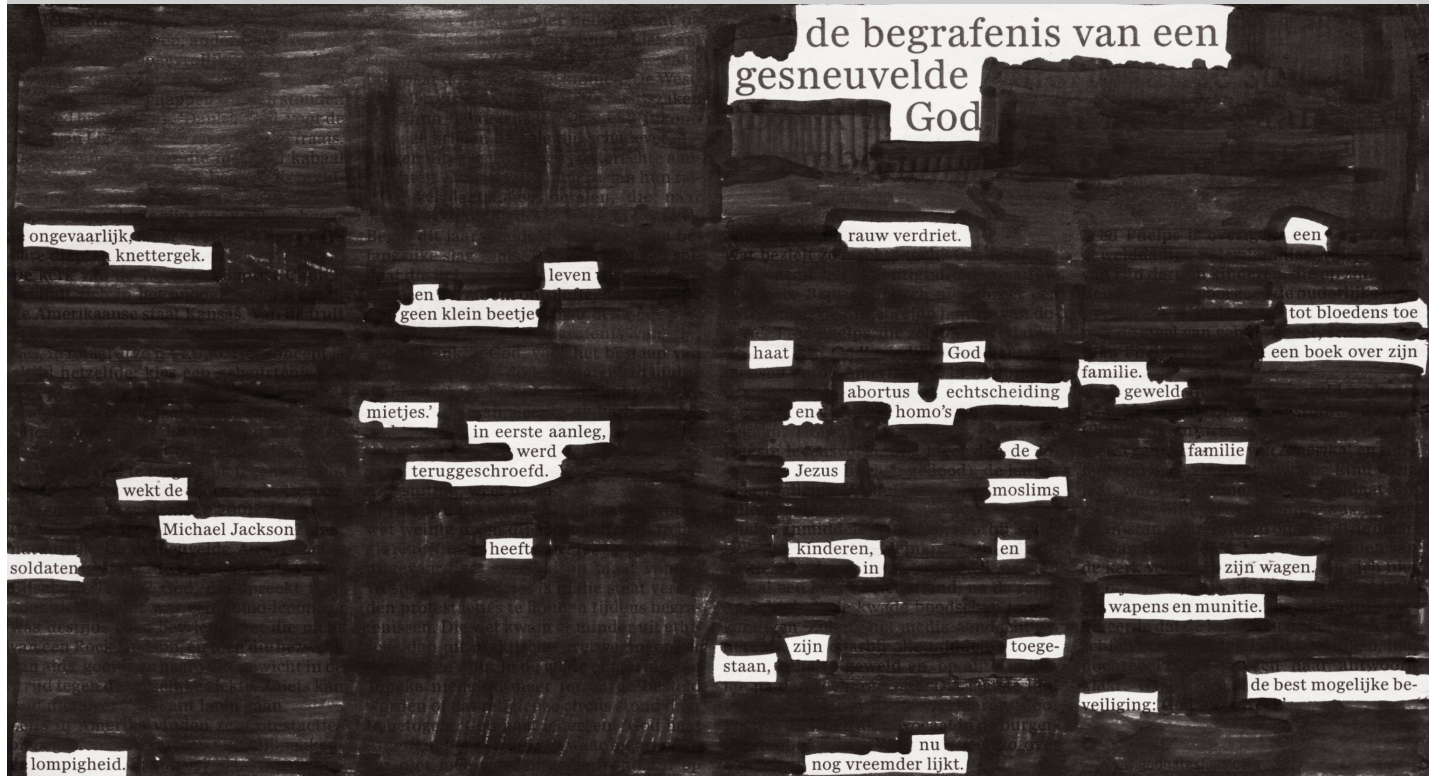 de begrafenis van een
gesneuvelde
God
ongevaarlijk,
knettergek.
wekt de
Michael Jackson
soldaten
lompigheid.
leven
en
geen klein beetje
mietjes.'
in eerste aanleg,
werd
teruggeschroefd.
heeft
rauw verdriet.
haat God
abortus echtscheiding
en homo's
de
Jezus
moslims
kinderen, en
in
zijn toege-
staan,
nu
nog vreemder lijkt.
een
tot bloedens toe
een boek over zijn
familie.
geweld
familie
zijn wagen.
wapens en munitie.
de best mogelijke be-
veiliging: